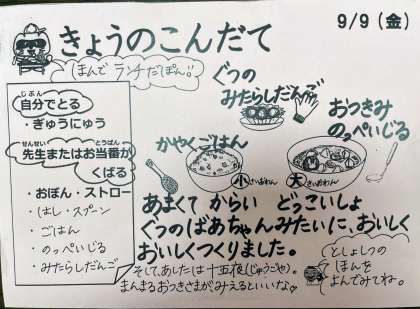 きょうのこんだて
9/9(金)
ほんで ランチだぽん!!
じぶん
自分でとる
・ぎゅうにゅう
せんせい とうばん
先生またはお当番が
くばる
・おぼん・ストロー
・はし・スプーン
・ごはん
・のっぺいじる
・みたらしだんご
ぐつの
みたらしだんご
おつきみ
のっぺいじる
かやくごはん
小さいおわん
大きいおわん
あまくて からい どっこいしょ
ぐつのばあちゃんみたいに、おいしく
おいしくつくりました。
そして、あしたは 十五夜(じゅうごや)。
まんまるおつきさまがみえるといいな♡
としょしつの
ほんを
よんでみてね。